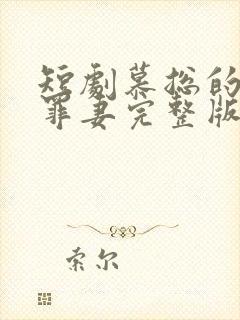 短劇慕総的
罪妻完整版
索尔